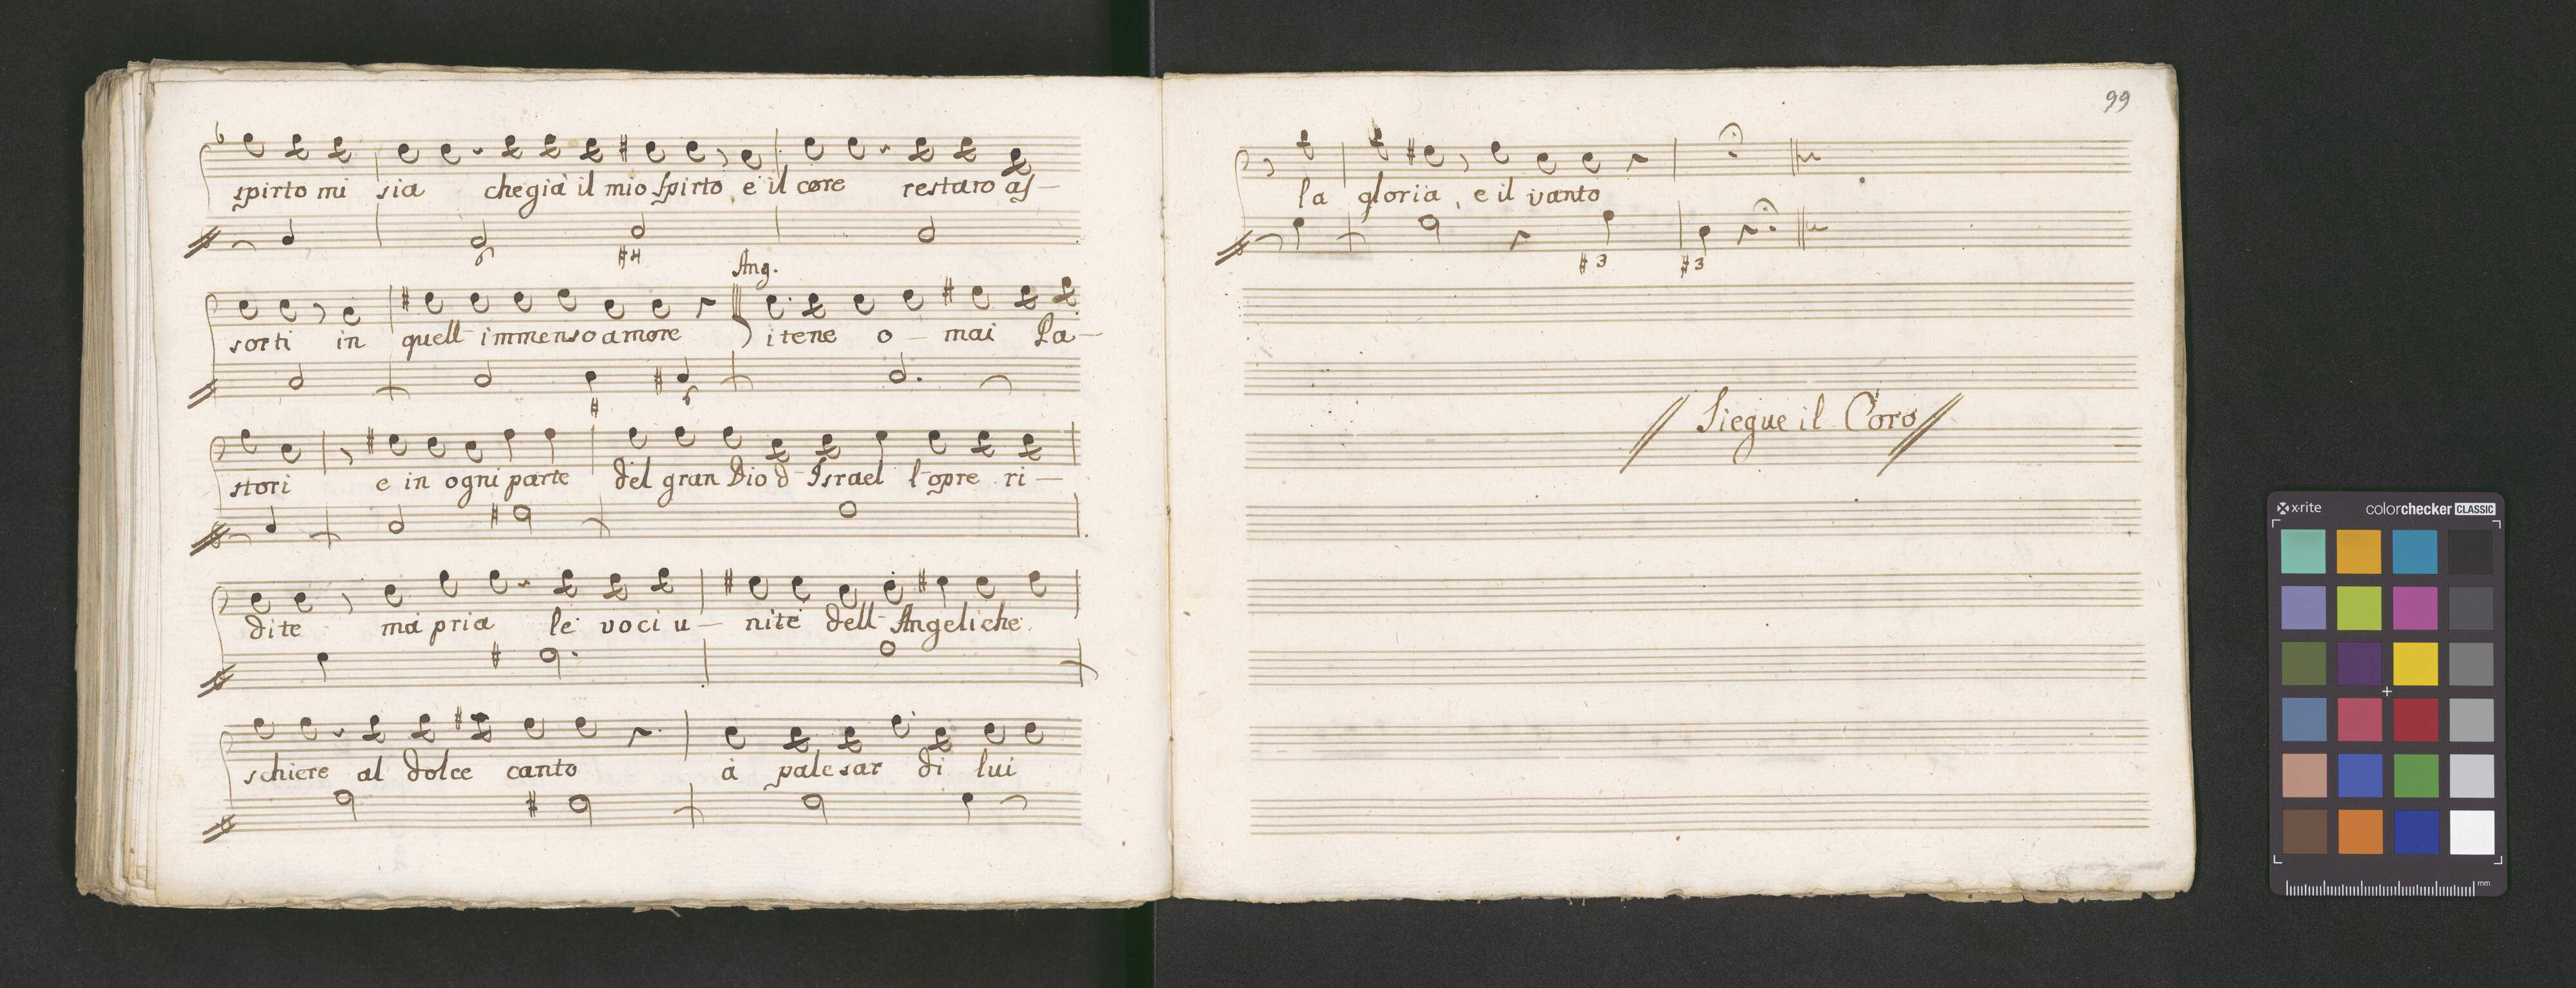 spirto mi sia che già il mio spirto, e il core restaro as-
6 #4
Ang.
sorti in quell' immenso amore itene o-mai Pa-
# 6
stori e in ogni parte del gran Dio d' Israel l'opre ri-
dite ma pria le voci u-nite dell' Angeliche
schiere al dolce canto à palesar di lui
99
la gloria, e il vanto
#3 #3
Siegue il Coro
x·rite colorchecker CLASSIC
mm